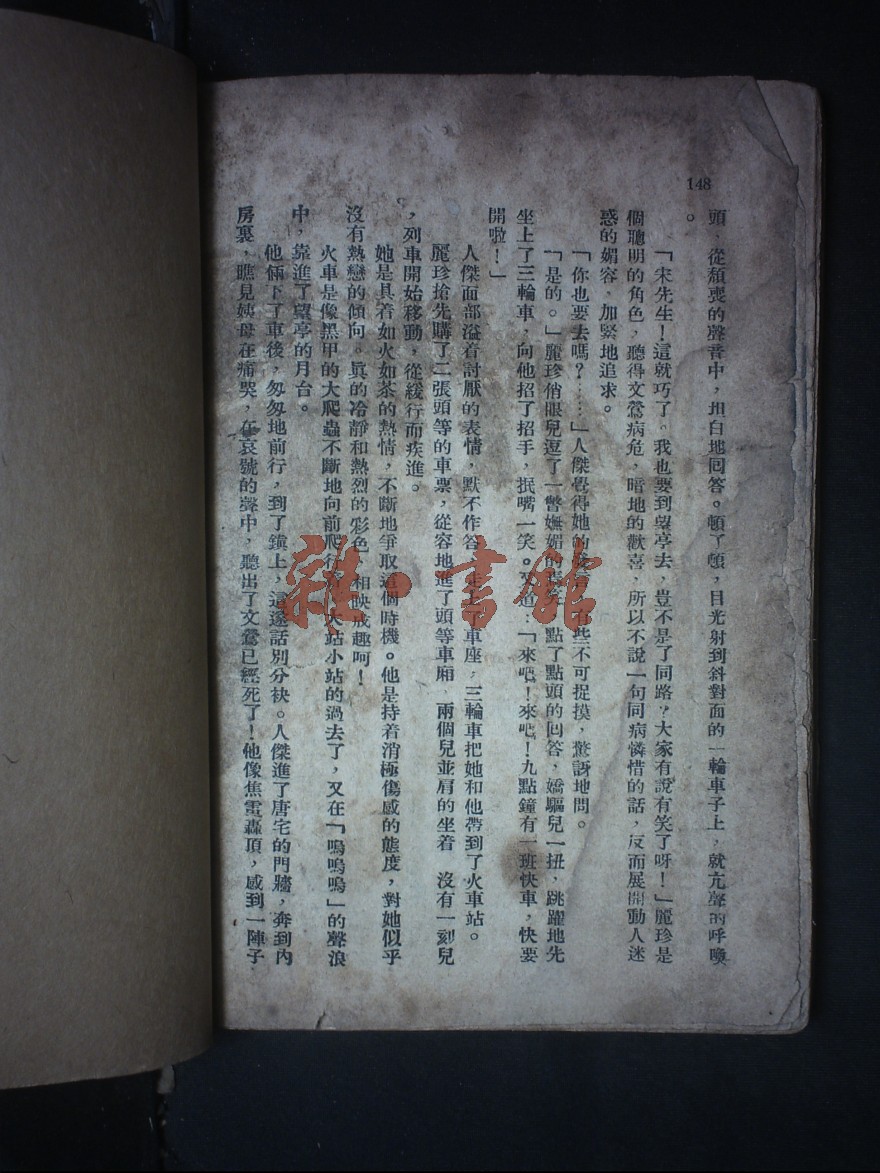 148
頭　從頹喪的聲音中，坦白地回答。頓了頓，目光射到斜對面的一輪車子上，就亢聲的呼喚
。
「宋先生！這就巧了。我也要到望亭去，豈不是了同路？大家有說有笑了呀！」麗珍是
個聰明的角色，聽得文鶯病危，暗地的歡喜，所以不說一句同病憐惜的話，反而展開動人迷
惑的媚容，加緊地追求。
「你也要去嗎？……」人傑覺得她的　有些不可捉摸，驚訝地問。
「是的。」麗珍俏眼兒逗了一瞥嫵媚的　點了點頭的回答，嬌軀兒一扭，跳躍地先
坐上了三輪車，向他招了招手，抿嘴一笑。又道：「來吧！來吧！九點鐘有一班快車，快要
開啦！」
人傑面部溢着討厭的表情，默不作答，走上了車座，三輪車把她和他帶到了火車站。
麗珍搶先購了二張頭等的車票，從容地進了頭等車廂　兩個兒並肩的坐着　沒有一刻兒
，列車開始移動，從緩行而疾進。
她是具着如火如荼的熱情，不斷地爭取這個時機。他是持着消極傷感的態度，對她似乎
沒有熱戀的傾向。眞的冷靜和熱烈的彩色　相映成趣呵！
火車是像黑甲的大爬蟲不斷地向前爬行着　大站小站的過去了，又在「嗚嗚嗚」的聲浪
中，靠進了望亭的月台。
他倆下了車後，匆匆地前行，到了鎭上，這邃話別分袂。人傑進了唐宅的門牆，奔到內
房裏，瞧見姨母在痛哭，在哀號的聲中，聽出了文鶯已經死了！他像焦雷轟頂，感到一陣子
雜·書館